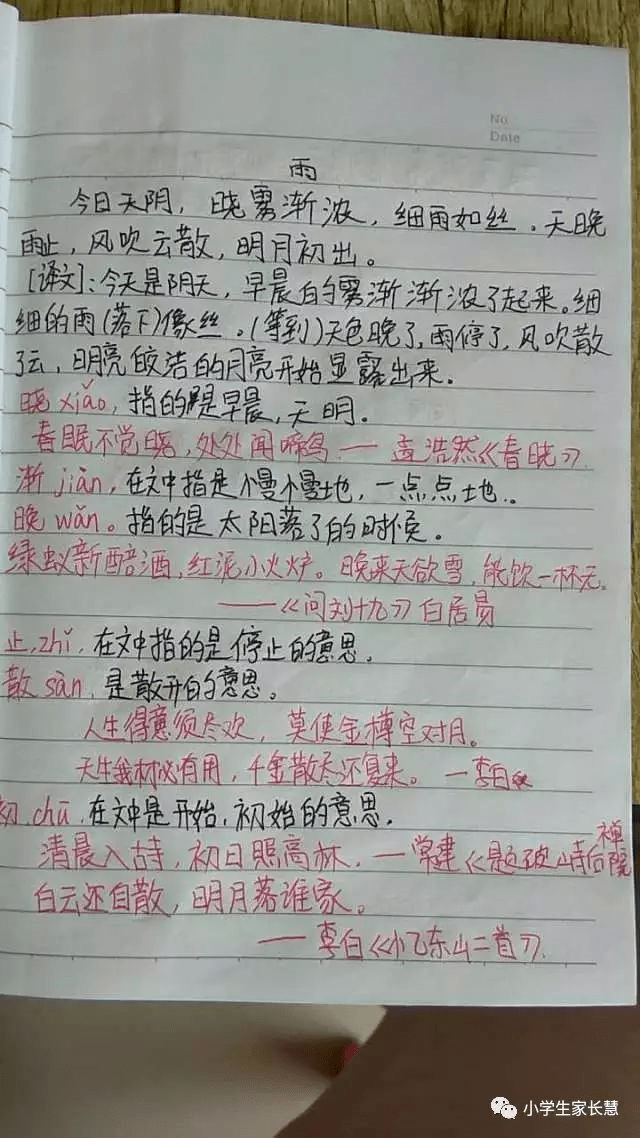 No
Date
雨
今日天阴，晓雾渐浓，细雨如丝。天晚
雨止，风吹云散，明月初出。
[译文]：今天是阴天，早晨的雾渐渐浓了起来。细
细的雨(落下)像丝。(等到)天色晚了，雨停了，风吹散
了云，明亮皎洁的月亮开始显露出来。
晓 xiǎo，指的是早晨，天明。
春眠不觉晓，处处闻啼鸟 — 孟浩然《春晓》.
渐 jiàn，在文中指是慢慢地，一点点地.
晚 wǎn。指的是太阳落了的时候。
绿蚁新醅酒，红泥小火炉。晚来天欲雪，能饮一杯无。
——《问刘十九》白居易
止，zhǐ，在文中指的是停止的意思。
散 sàn，是散开的意思。
人生得意须尽欢，莫使金樽空对月。
天生我材必有用，千金散尽还复来。—李白
初 chū，在文中是开始，初始的意思，
清晨入古寺，初日照高林，—常建《题破山寺后禅院
白云还自散，明月落谁家。
—李白《忆东山二首》.
小学生家长慧